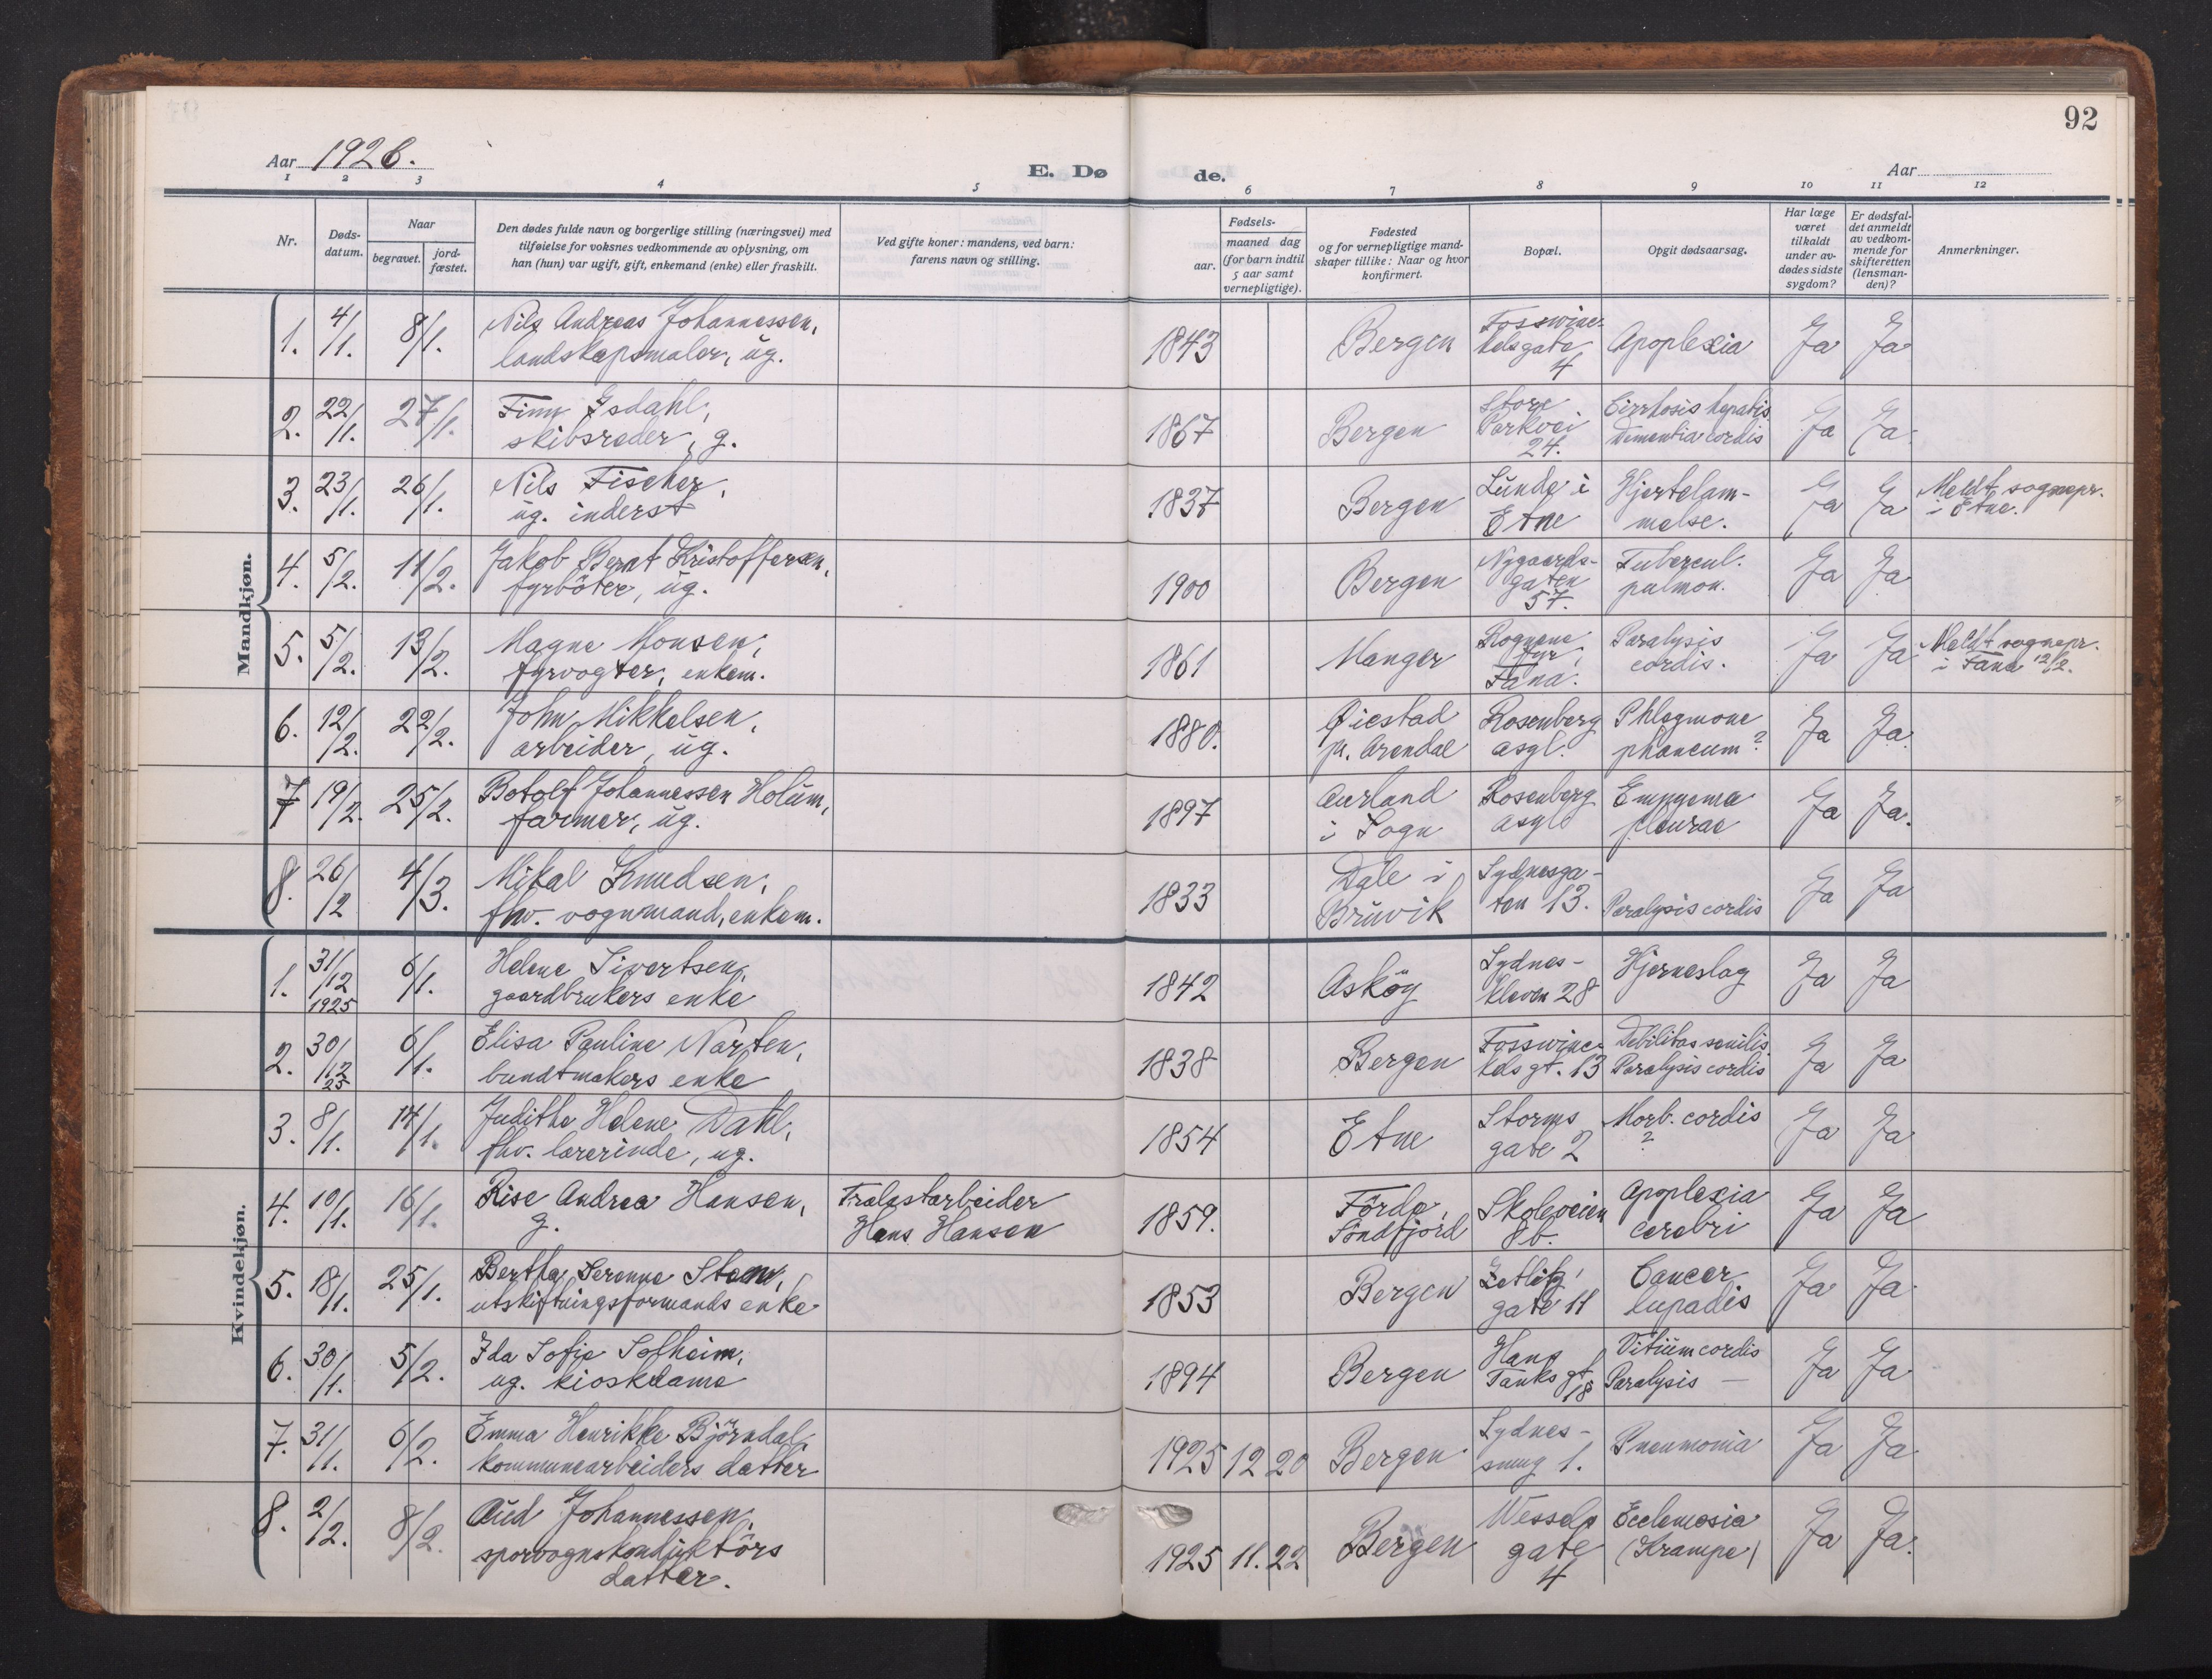 92
Aar 1926.
E. Dø
de.
Aar
1 2 3 4 5 6 7 8 9 10 11 12
Nr.
Døds-
datum.
Naar
begravet.
jord-
fæstet.
Den dødes fulde navn og borgerlige stilling (næringsvei) med
tilføielse for voksnes vedkommende av oplysning, om
han (hun) var ugift, gift, enkemand (enke) eller fraskilt.
Ved gifte koner: mandens, ved barn:
farens navn og stilling.
Fødsels-
aar.
maaned dag
(for barn indtil
5 aar samt
vernepligtige).
Fødested
og for vernepligtige mand-
skaper tillike: Naar og hvor
konfirmert.
Bopæl.
Opgit dødsaarsag.
Har læge
været
tilkaldt
under av-
dødes sidste
sygdom?
Er dødsfal-
det anmeldt
av vedkom-
mende for
skifteretten
(lensman-
den)?
Anmerkninger.
Mandkjøn.
1. 4/1. 8/1. Nils Andreas Johannessen,
landskapsmaler, ug.
1843 Bergen Fosswinc-
kelsgate
4
Apoplexia Ja Ja
2. 22/1. 27/1. Finn Isdahl,
skibsreder, g.
1867 Bergen Store
Parkvei
24.
Cirrhosis hepatis
Dementia cordis
Ja Ja.
3. 23/1. 26/1. Nils Fischer,
ug. inderst
1837 Bergen Lunde i
Etne
Hjertelam-
melse.
Ja Ja Meldt sognepr.
i Etne.
4. 5/2. 11/2. Jakob Bernt Kristoffersen,
fyrböter, ug.
1900 Bergen Nygaards-
gaten
57.
Tubercul.
pulmon.
Ja Ja
5. 5/2. 13/2. Magne Monsen,
fyrvogter, enkem.
1861 Manger Rognene
fyr,
Fana.
Paralysis
cordis.
Ja Ja Meldt sognepr.
i Fana 12/2.
6. 12/2. 22/2. John Mikkelsen,
arbeider, ug.
1880. Øiestad
pr. Arendal
Rosenberg
asyl.
Phlegmone
phaneum?
Ja Ja.
7 19/2. 25/2. Botolf Johannessen Holum,
farmer, ug.
1897 Aurland
i Sogn
Rosenberg
asyl
Empyema
pleurae
Ja Ja.
8. 26/12 4/3. Mikal Knudsen,
fhv. vognmand, enkem.
1833 Dale i
Bruvik
Sydnesga-
ten 13.
Paralysis cordis Ja Ja
Kvindekjøn.
1. 31/12
1925
6/1. Helene Sivertsen,
gaardbrukers enke
1842 Asköy Sydnes-
kleven 28
Hjerneslag Ja Ja
2. 30/12
25
6/1. Elisa Pauline Narten,
bundtmakers enke
1838 Bergen Fosswinc-
kels gt. 13
Debilitas senilis
Paralysis cordis
Ja Ja
3. 8/1. 14/1. Judithe Helene Dahl,
fhv. lærerinde, ug.
1854 Etne Storms
gate 2
Morb. cordis
?
Ja Ja
4. 10/1. 16/1. Rise Andrea Hansen,
g.
Trælastarbeider
Hans Hansen
1859. Förde,
Söndfjord
Skoleveien
8b.
Apoplexia
cerebri
Ja Ja
5. 18/1. 25/1. Bertha Serenne Stam,
utskiftningsformands enke
1853 Bergen Zetlitz'
gate 11
Cancer
Ja Ja.
6. 30/1. 5/2. Ida Sofie Solheim,
ug. kioskdame
1894 Bergen Hans
Tanks gt
18
Vitium cordis
Paralysis —
Ja Ja
7. 31/1. 6/2. Emma Henrikke Björndal,
kommunearbeiders datter
1925 12 20 Bergen Sydnes-
smug 1.
Pneumonia Ja Ja
8. 2/2. 8/2. Aud Johannessen,
sporvognskonduktörs
datter.
1925 11. 22 Bergen Wessels
gate
4
Ecclemesia
(Krampe)
Ja Ja.